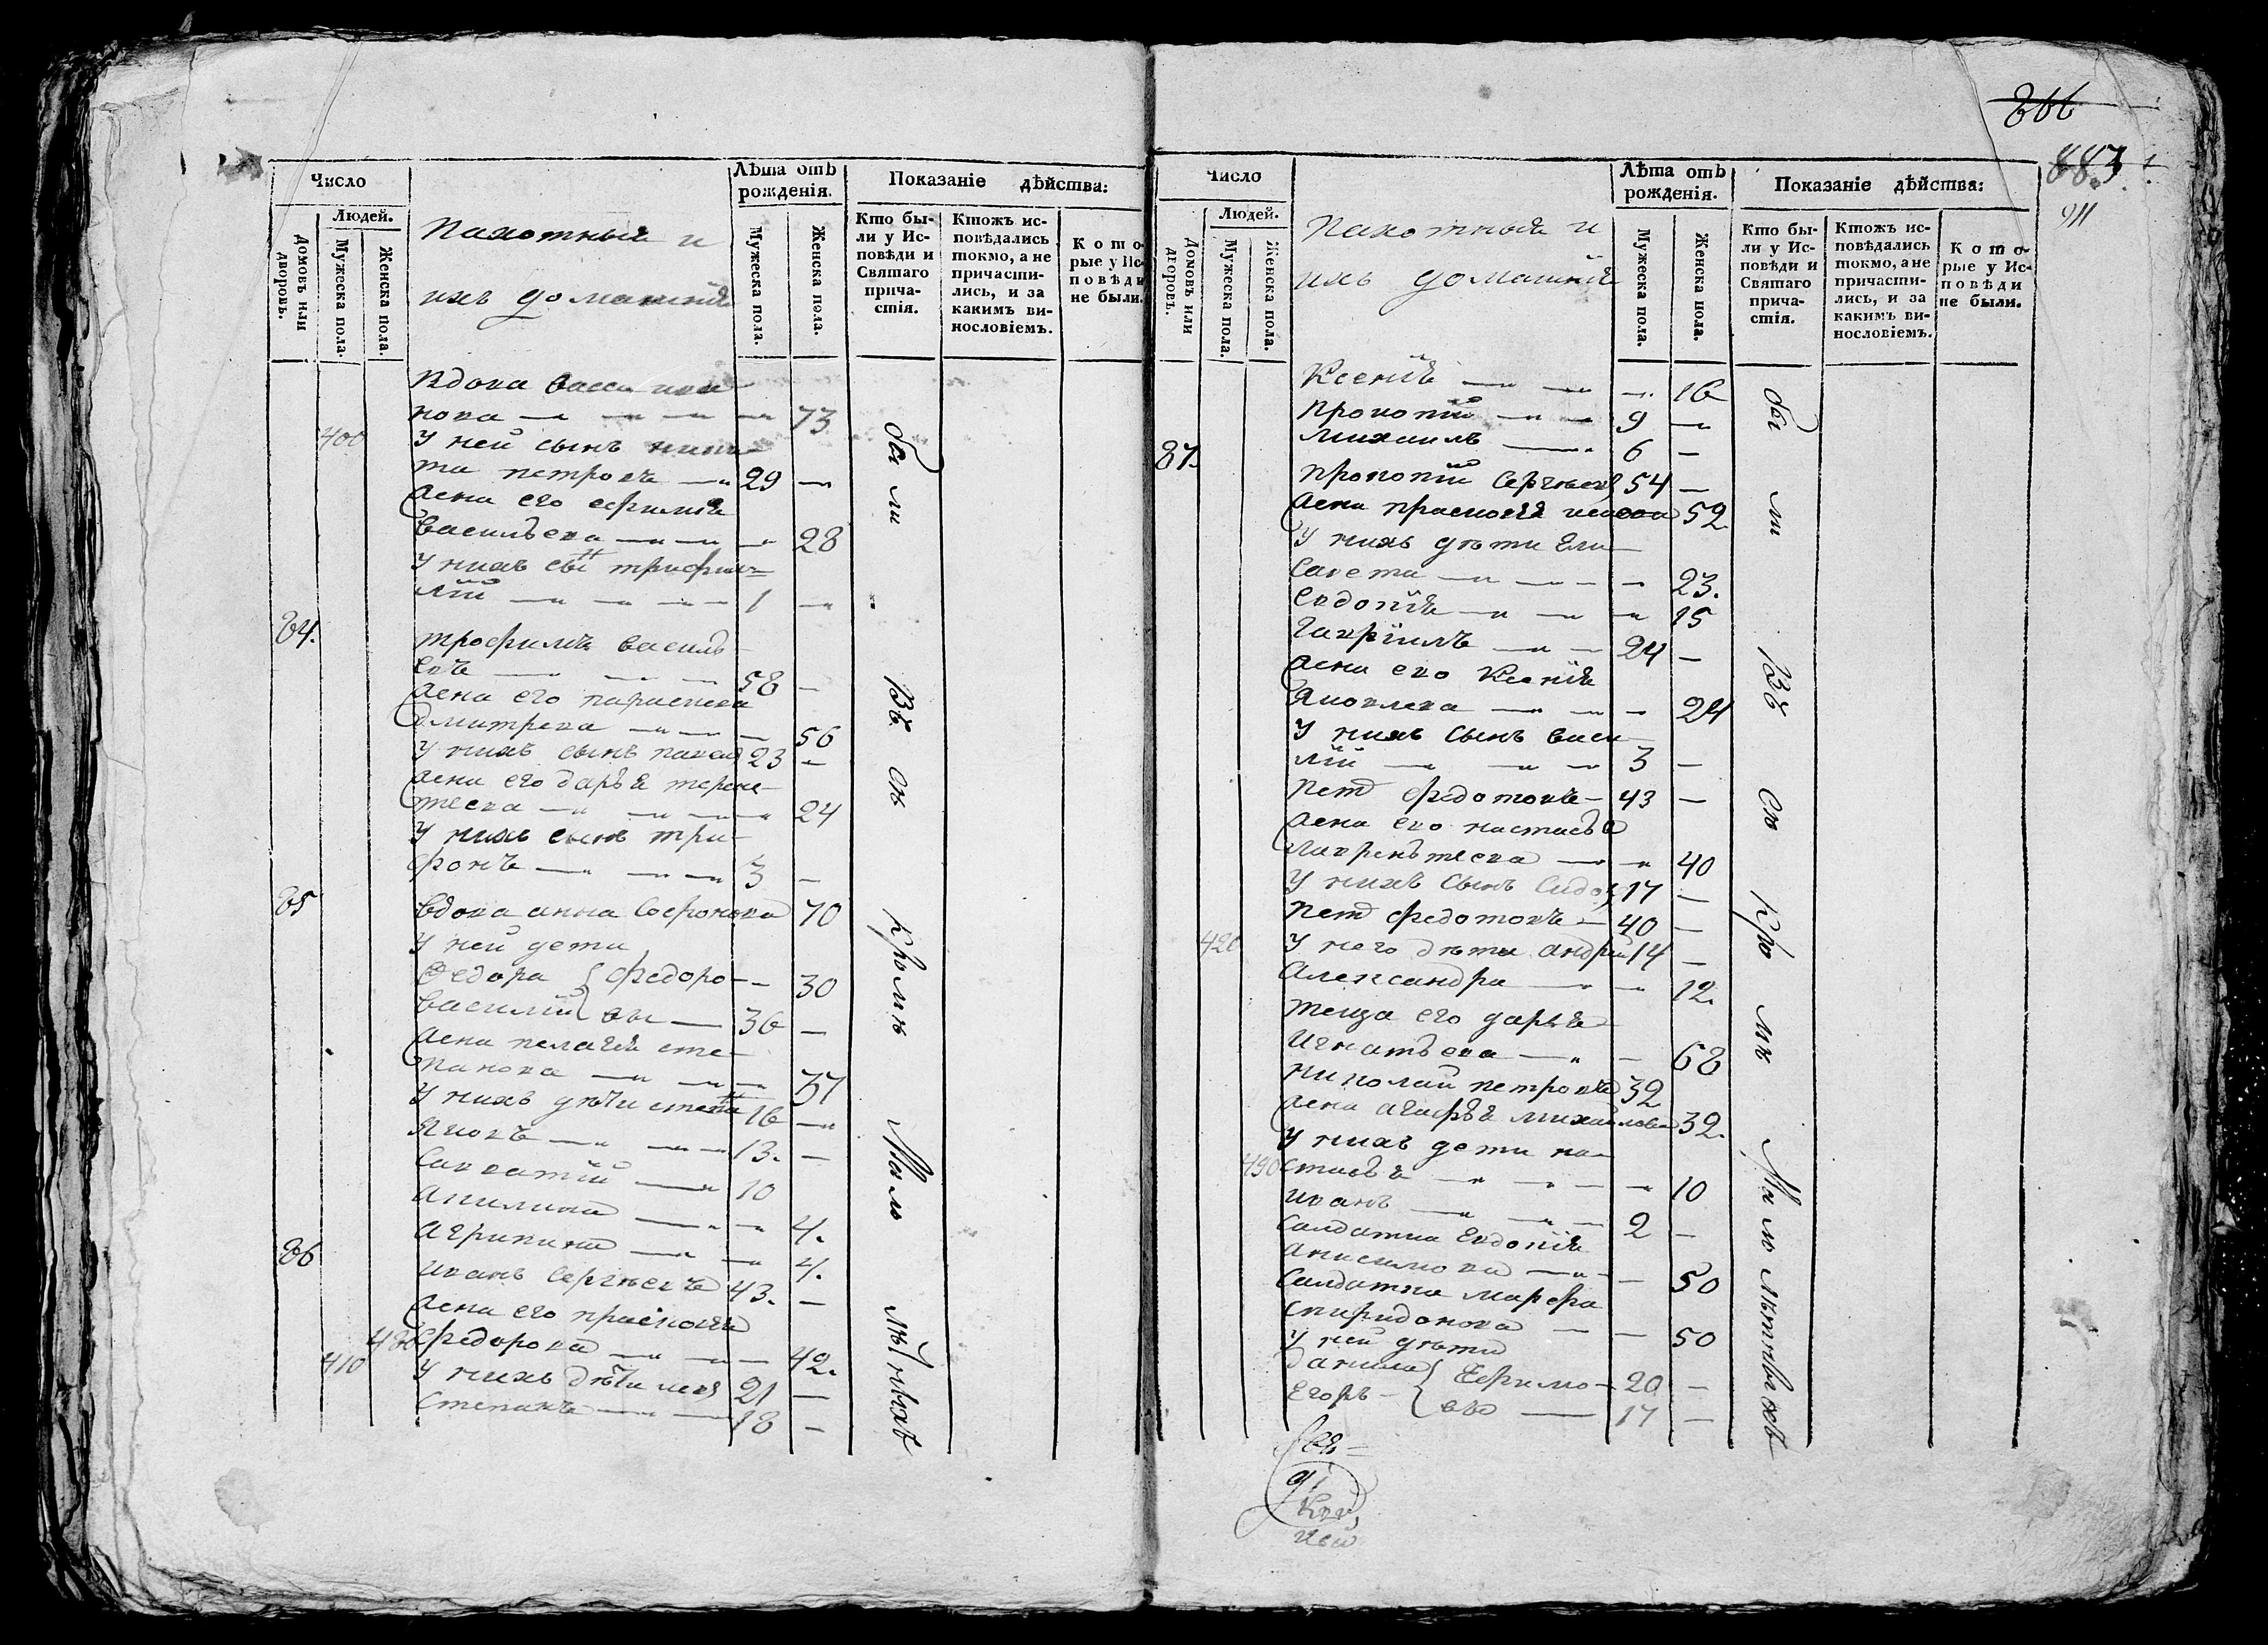 Число
Людей.
Домовъ или дворовъ.
Мужеска пола.
Женска пола.
Пахотныя и
ихъ домашнія
Лѣта отъ рожденія.
Мужеска пола.
Женска пола.
Показаніе дѣйства:
Кто бы-
ли у Ис-
повѣди и
Святаго
прича-
стія.
Ктожъ ис-
повѣдались
токмо, а не
причасти-
лись, и за
какимъ ви-
нословіемъ.
Кото-
рые у Ис-
повѣди
не были.
Вдова
нова 73
400 У ней сынъ ники-
та петровъ 29
жена его ефимія
васильева 28
У нихъ сынъ
лій 1
84. трофимъ василь
евъ 58
жена его параскева
дмитрева 56
У нихъ сынъ 23
жена его дарья терен-
тьева 24
У нихъ сынъ три-
фонъ 3
85 Вдова анна софронова 70
У ней дети
Федора федоро- 30
василій вы 36
жена пелагея сте-
панова 37
У нихъ дѣти степанъ 16
Яковъ 13.
Савватій 10
Акилина 4.
Агрипина 4.
86 иванъ сергѣевъ 43.
жена его прасковья
федорова 42.
410 У нихъ дѣти 21
Степанъ 18
были Въ Св Кромѣ Мало лѣтныхъ
266
883
911
Число
Людей.
Домовъ или дворовъ.
Мужеска пола.
Женска пола.
Пахотныя и
ихъ домашнія
Лѣта отъ рожденія.
Мужеска пола.
Женска пола.
Показаніе дѣйства:
Кто бы-
ли у Ис-
повѣди и
Святаго
прича-
стія.
Ктожъ ис-
повѣдались
токмо, а не
причасти-
лись, и за
какимъ ви-
нословіемъ.
Кото-
рые у Ис-
повѣди
не были.
Ксенія 16
прокопій 9
михаилъ 6
87. прокопій Сергѣевъ 54
жена прасковья 52
У нихъ дѣти Ели-
савета 23.
евдокія 15
Гавріилъ 24
жена его Ксенія
Яковлева 24
У нихъ сынъ васи
лій 3
петръ федотовъ 43
жена его настасья
лаврентьева 40
У нихъ сынъ Сидоръ 17
петръ федотовъ 40
420 У него дѣти андрей 14
Александра 12.
теща его дарья
Игнатьева 68
николай петровъ 32
жена агафья михайлова 32.
У нихъ дети на-
стасья 10
иванъ 2
Салдатка Евдокія
Анисимова 50
Салдатка марфа
спиридонова 50
У ней дѣти
данила Ефимо- 20
Егоръ вы 17
были Въ Св Кромѣ Мало лѣтныхъ